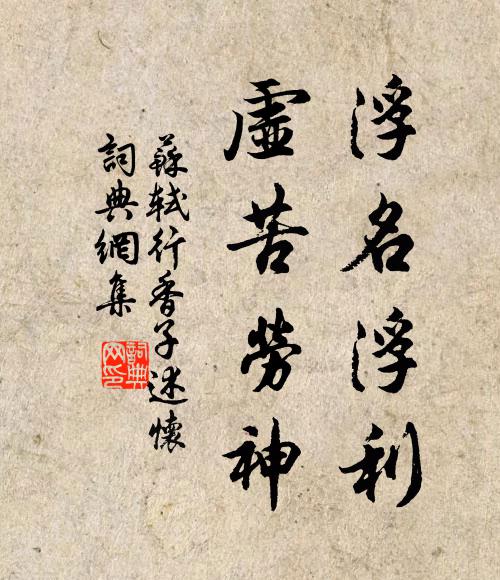 浮名浮利
虛苦勞神
蘇軾行香子述懷
詞典網集
詞典网印